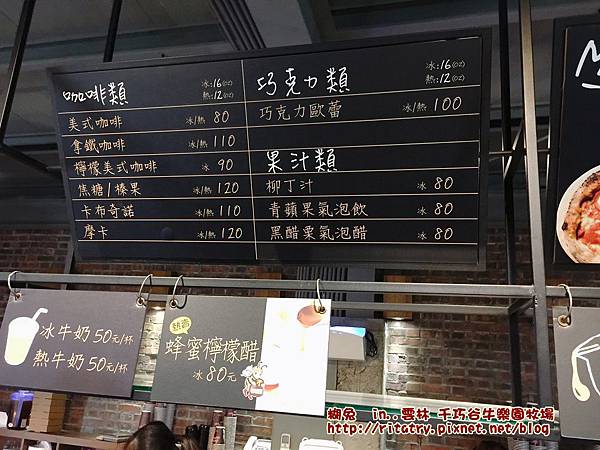 咖啡類 冰:16(oz)
熱:12(oz)
美式咖啡 冰/熱 80
拿鐵咖啡 冰/熱 110
檸檬美式咖啡 冰 90
焦糖/榛果 冰/熱 120
卡布奇諾 冰/熱 110
摩卡 冰/熱 120
巧克力類 冰:16(oz)
熱:12(oz)
巧克力歐蕾 冰/熱 100
果汁類
柳丁汁 冰 80
青蘋果氣泡飲 冰 80
黑醋栗氣泡醋 冰 80
冰牛奶50元/杯
熱牛奶50元/杯
熱賣
蜂蜜檸檬醋
冰80元
in..雲林 千巧谷牛樂園牧場
http://ritatry.pixnet.net/blog